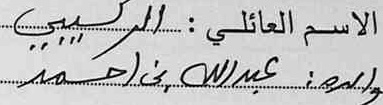 الاسم العائلي : المركسيبي
والده : عبدالله بن احمد